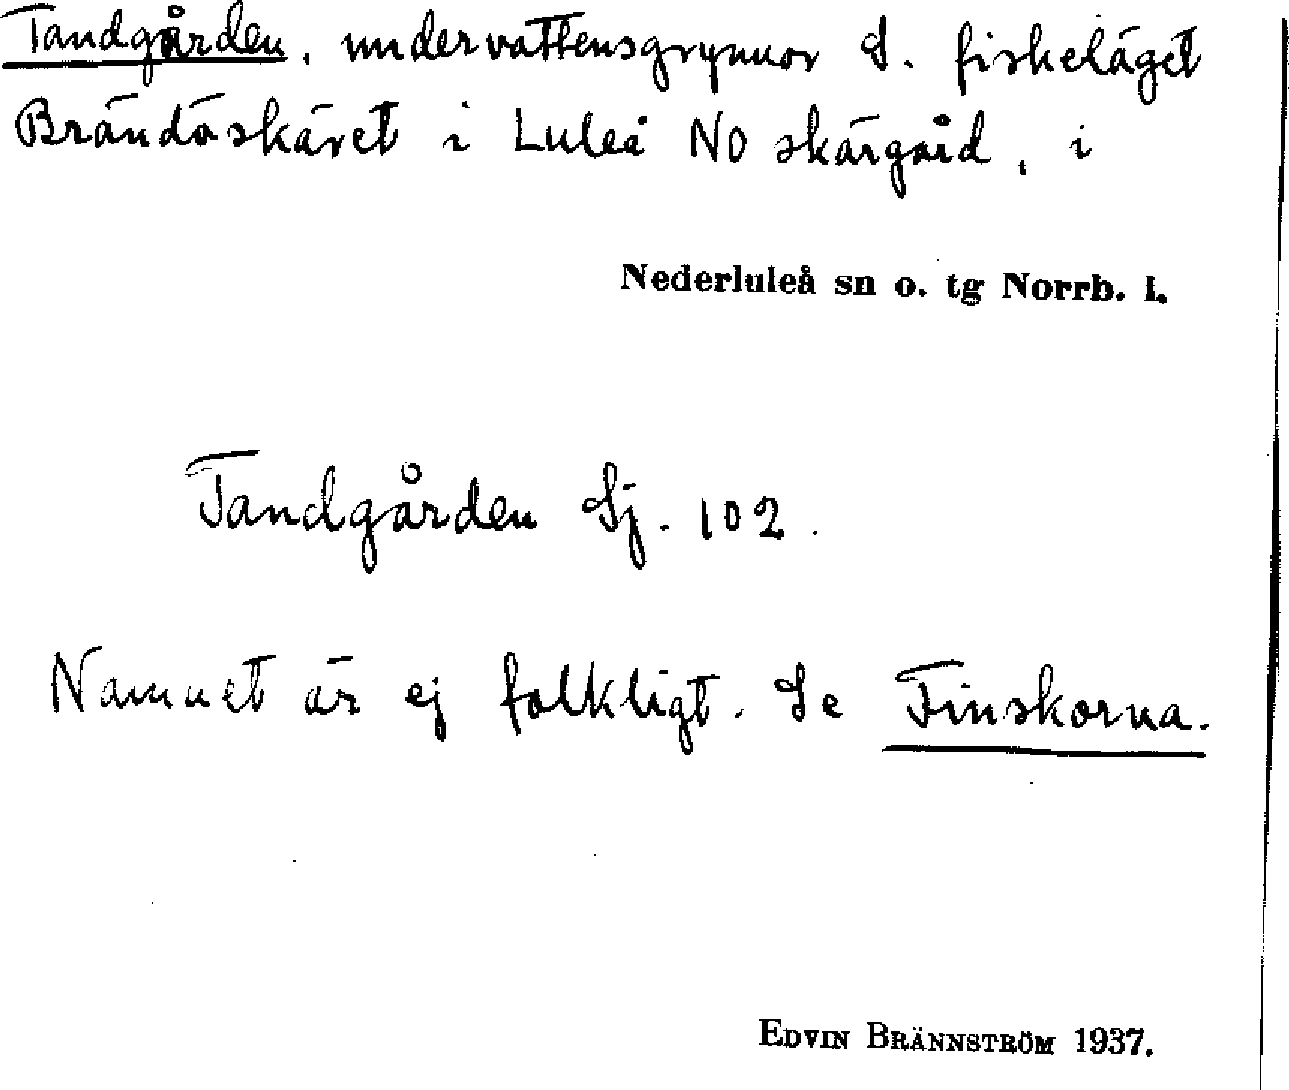 Tandgården, undervattensgrynnor S. fiskeläget
Brändöskäret i Luleå NO skärgård, i
Nederluleå sn o. tg Norrb. l.
Tandgården Sj. 102.
Namnet är ej folkligt. Se Finskorna.
EDVIN BRÄNNSTRÖM 1937.